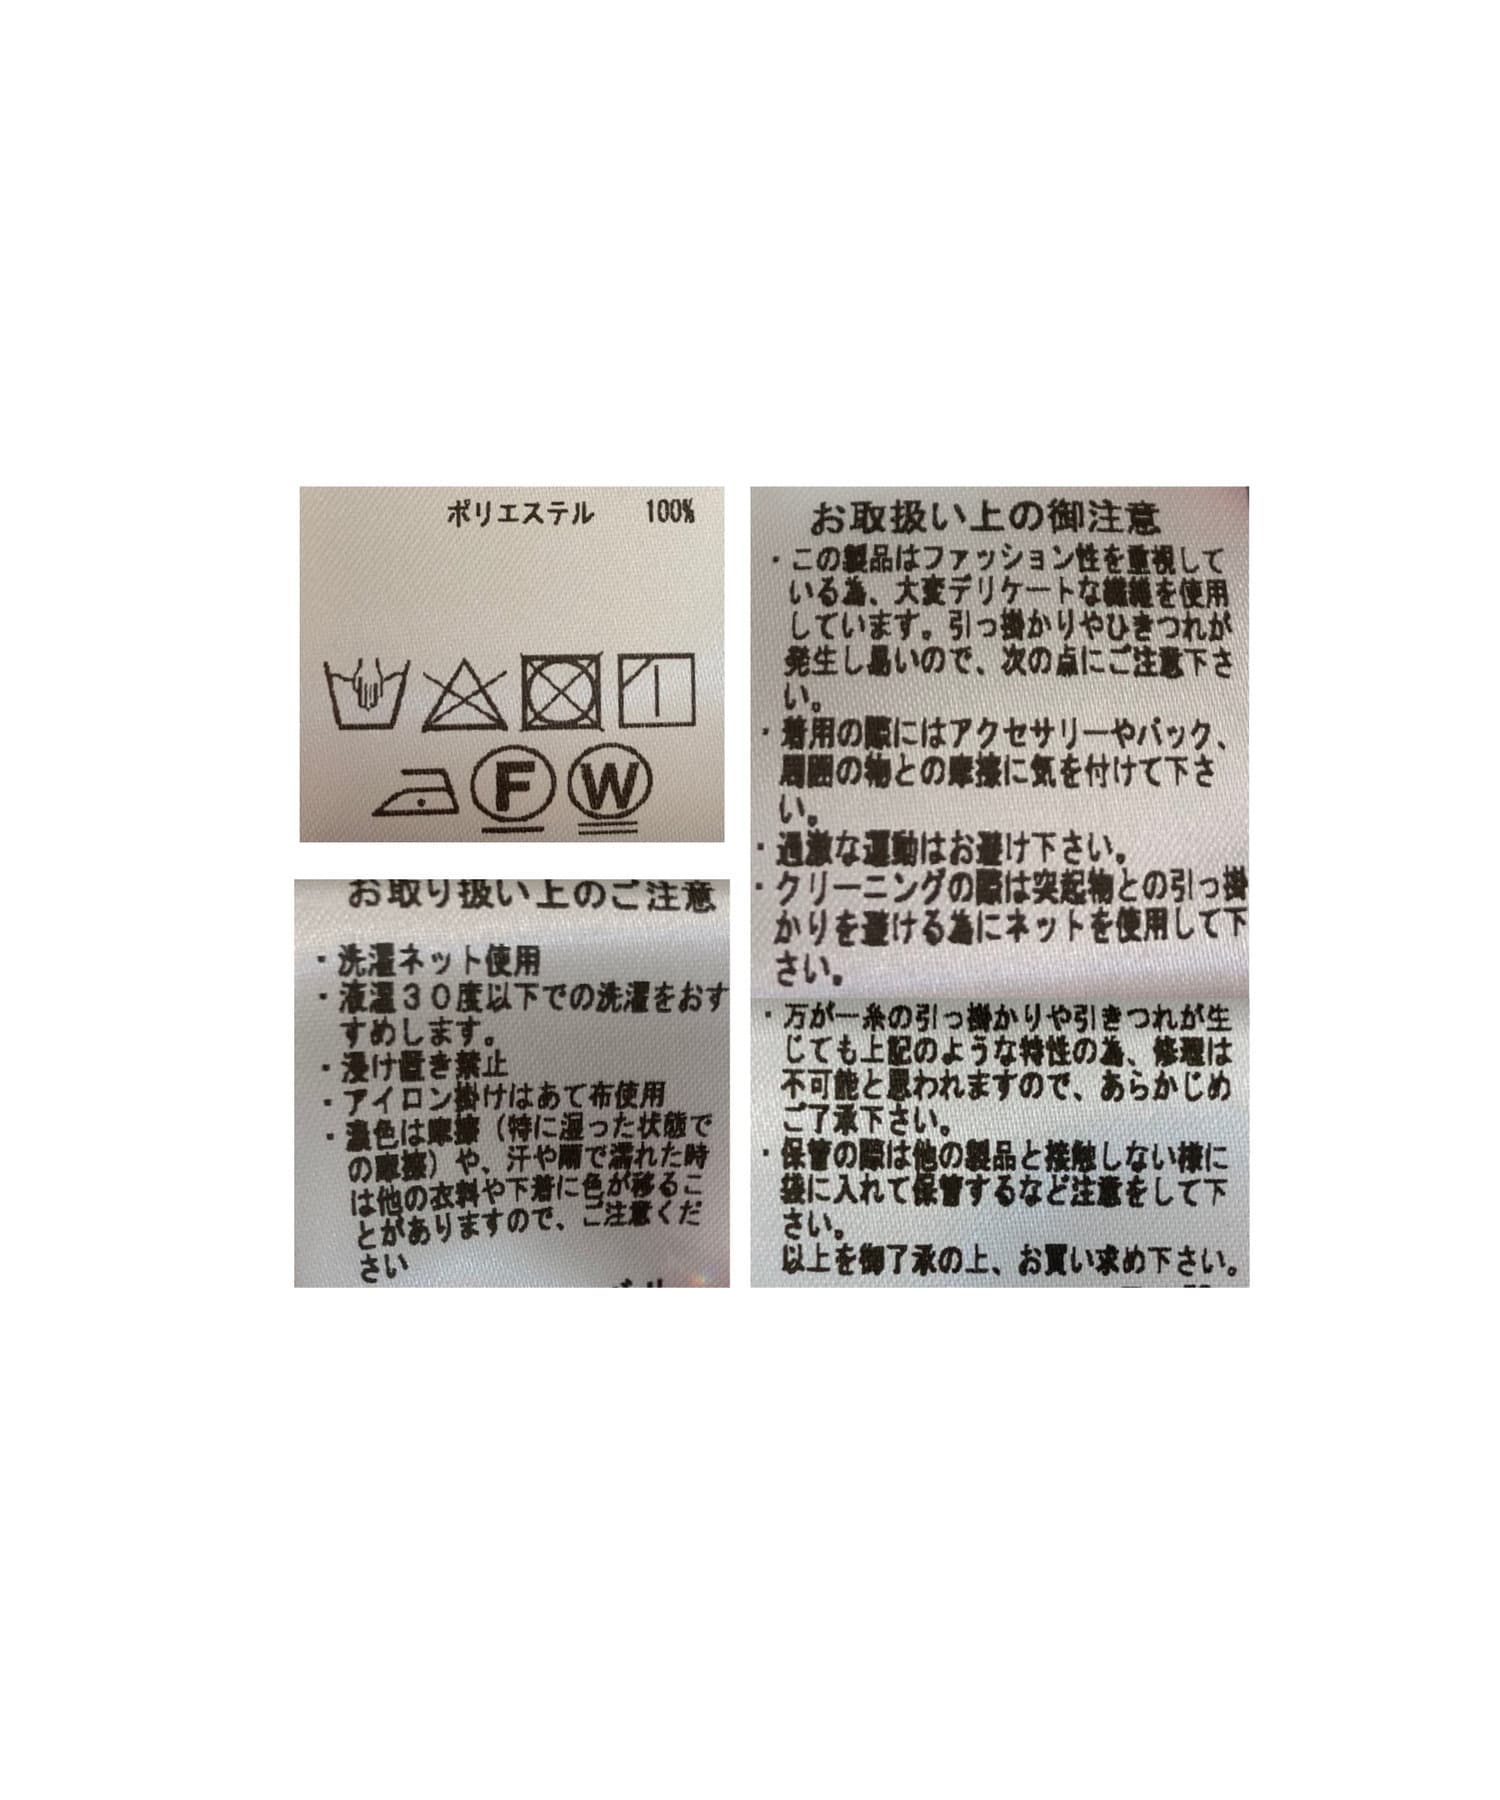 ポリエステル 100%
F W
お取り扱い上のご注意
・洗濯ネット使用
・液温30度以下での洗濯をおす
すめします。
・浸け置き禁止
・アイロン掛けはあて布使用
・濃色は摩擦(特に湿った状態で
の摩擦)や、汗や雨で濡れた時
は他の衣料や下着に色が移るこ
とがありますので、ご注意くだ
さい
お取扱い上の御注意
・この製品はファッション性を重視して
いる為、大変デリケートな繊維を使用
しています。引っ掛かりやひきつれが
発生し易いので、次の点にご注意下さ
い。
・着用の際にはアクセサリーやバック、
周囲の物との摩擦に気を付けて下さ
い。
・過激な運動はお避け下さい。
・クリーニングの際は突起物との引っ掛
かりを避ける為にネットを使用して下
さい。
・万が一糸の引っ掛かりや引きつれが生
じても上記のような特性の為、修理は
不可能と思われますので、あらかじめ
ご了承下さい。
・保管の際は他の製品と接触しない様に
袋に入れて保管するなど注意をして下
さい。
以上を御了承の上、お買い求め下さい。